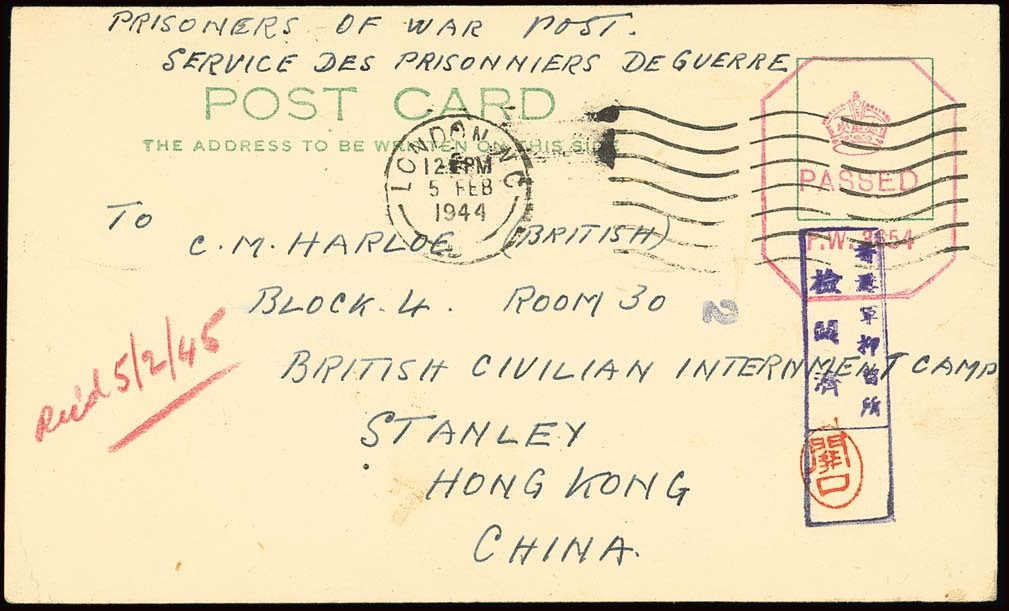 PRISONERS OF WAR POST.
SERVICE DES PRISONNIERS DE GUERRE
POST CARD
THE ADDRESS TO BE WRITTEN ON THIS SIDE
LONDON, W.C
PM
5 FEB
1944
PASSED
P.W.
To
C. M. HARLOE (BRITISH)
BLOCK. 4. ROOM 30
2
BRITISH CIVILIAN INTERNMENT CAMP
STANLEY
HONG KONG
CHINA.
Rec'd 5/2/45
香港軍抑留所
検閲済
関口